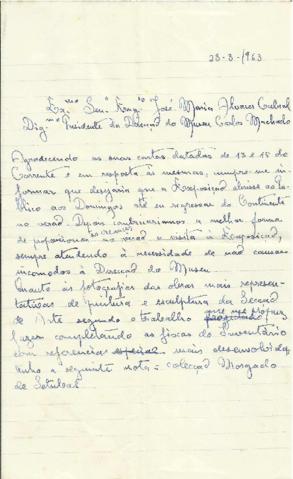 23-3-1963
Ex.mo Snr. Engo José Maria Alvares Cabral
Dig.mo Presidente da Direcção do Museu Carlos Machado
Agradecendo as suas cartas datadas de 13 e 15 do
Corrente e em resposta às mesmas, cumpre-me in-
formar que desejaria que a Exposição abrisse ao Pú-
blico aos Domingos até eu regressar do Continente
no verão. Depois combinaremos a melhor forma
de proporcionar às creanças no verão a visita à Exposição,
sempre atendendo à necessidade de não causar
incómodos à Direcção do Museu.
Quanto às fotografias das obras mais represen-
tativas de pintura e escultura da Secção
de Arte segundo o trabalho que me propus
fazer completando as fichas do Inventário
com referencia mais desenvolvida,
tenho a seguinte nota: colecção Morgado
de Setúbal